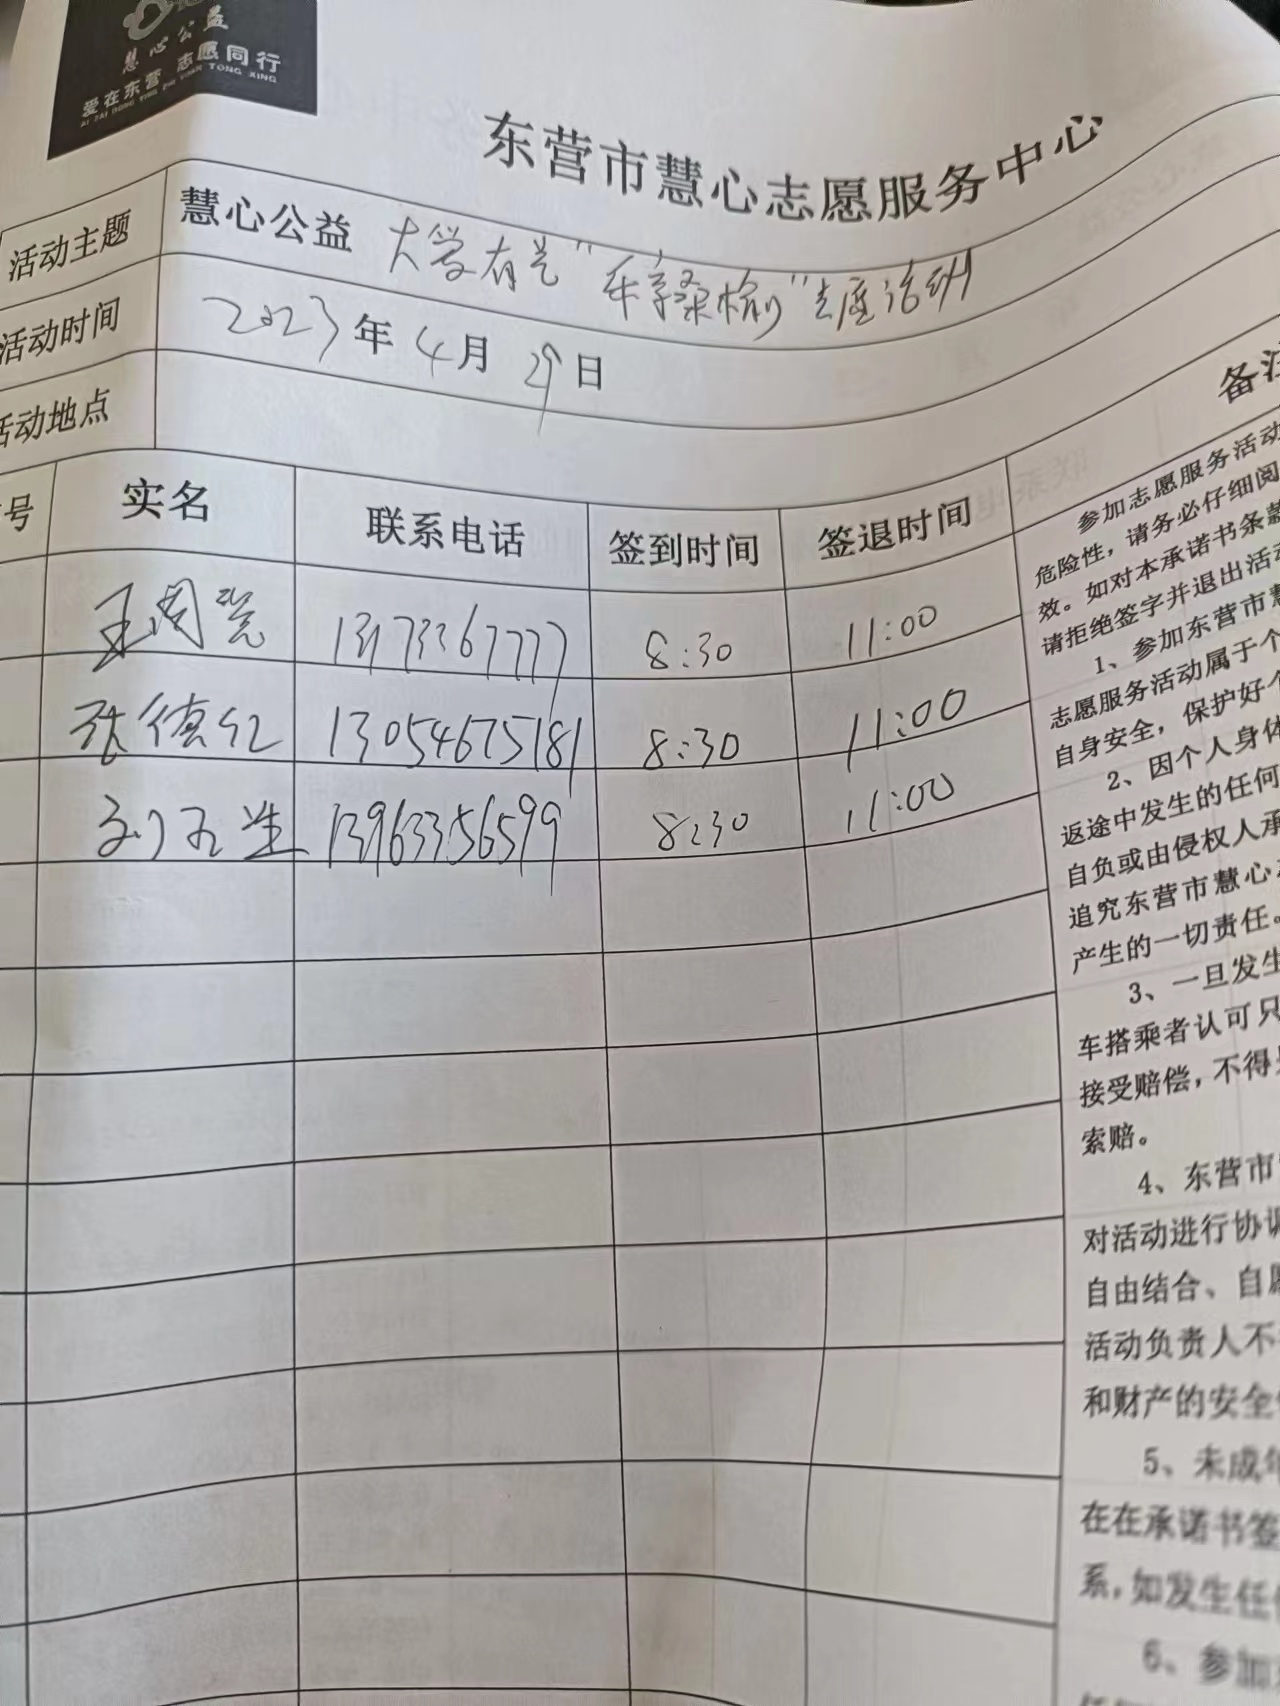 慧心公益
爱在东营 志愿同行
AI ZAI DONG YING ZHI YUAN TONG XING
东营市慧心志愿服务中心
活动主题 慧心公益 大学有光"乐享桑榆"志愿活动
活动时间 2023年4月29日
活动地点
号 实名 联系电话 签到时间 签退时间 备注
王周 13173367777 8:30 11:00
张德红 13054675181 8:30 11:00
刘玉生 13963356599 8:30 11:00
参加志愿服务活动
危险性，请务必仔细阅
效。如对本承诺书条款
请拒绝签字并退出活动
1、参加东营市慧
志愿服务活动属于个
自身安全，保护好个
2、因个人身体
返途中发生的任何
自负或由侵权人承
追究东营市慧心
产生的一切责任。
3、一旦发生
车搭乘者认可只
接受赔偿，不得
索赔。
4、东营市
对活动进行协调
自由结合、自愿
活动负责人不
和财产的安全
5、未成年
在在承诺书签
系，如发生任
6、参加